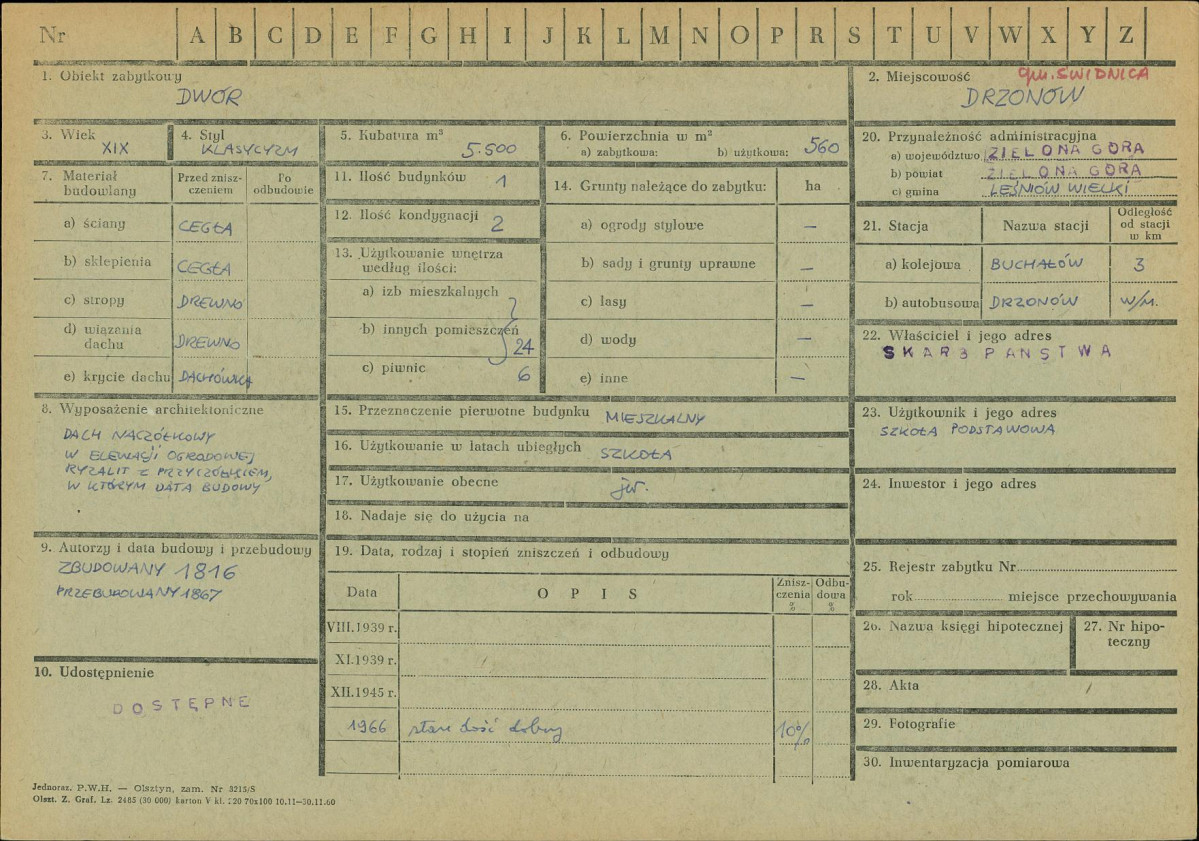 Nr A B C D E F G H I J K L M N O P R S T U V W X Y Z
1. Obiekt zabytkowy
DWÓR
2. Miejscowość gm. ŚWIDNICA
DRZONÓW
3. Wiek
XIX
4. Styl
KLASYCYZM
5. Kubatura m³
5.500
6. Powierzchnia w m²
a) zabytkowa: b) użytkowa: 560
7. Materiał budowlany
Przed znisz-
czeniem
Po
odbudowie
a) ściany CEGŁA
b) sklepienia CEGŁA
c) stropy DREWNO
d) wiązania
dachu DREWNO
e) krycie dachu DACHÓWKA
8. Wyposażenie architektoniczne
DACH NACZÓŁKOWY
W ELEWACJI OGRODOWEJ
RYZALIT Z PRZYCZÓŁKIEM,
W KTÓRYM DATA BUDOWY
9. Autorzy i data budowy i przebudowy
ZBUDOWANY 1816
PRZEBUDOWANY 1867
10. Udostępnienie
DOSTĘPNE
11. Ilość budynków 1
12. Ilość kondygnacji 2
13. Użytkowanie wnętrza
według ilości:
a) izb mieszkalnych
b) innych pomieszczeń 24
c) piwnic 6
14. Grunty należące do zabytku: ha
a) ogrody stylowe —
b) sady i grunty uprawne —
c) lasy —
d) wody —
e) inne —
15. Przeznaczenie pierwotne budynku MIESZKALNY
16. Użytkowanie w latach ubiegłych SZKOŁA
17. Użytkowanie obecne jw.
18. Nadaje się do użycia na
19. Data, rodzaj i stopień zniszczeń i odbudowy
Data
O P I S
Znisz-
czenia
%
Odbu-
dowa
%
VIII.1939 r.
XI.1939 r.
XII.1945 r.
1966 stan dość dobry 10%
20. Przynależność administracyjna
a) województwo ZIELONA GÓRA
b) powiat ZIELONA GÓRA
c) gmina LEŚNIÓW WIELKI
21. Stacja Nazwa stacji
Odległość
od stacji
w km
a) kolejowa BUCHAŁÓW 3
b) autobusowa DRZONÓW W/M.
22. Właściciel i jego adres
SKARB PAŃSTWA
23. Użytkownik i jego adres
SZKOŁA PODSTAWOWA
24. Inwestor i jego adres
25. Rejestr zabytku Nr
rok miejsce przechowywania
26. Nazwa księgi hipotecznej
27. Nr hipo-
teczny
28. Akta
29. Fotografie
30. Inwentaryzacja pomiarowa
Jednoraz. P.W.H. — Olsztyn, zam. Nr 3215/S
Olszt. Z. Graf. Lz. 2485 (30 000) karton V kl. 220 70x100 10.11—30.11.60